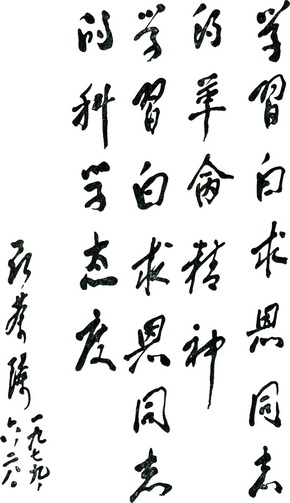 学習白求恩同志
的革命精神
学習白求恩同志
的科学态度
聂荣臻
一九七九、
六、二八、